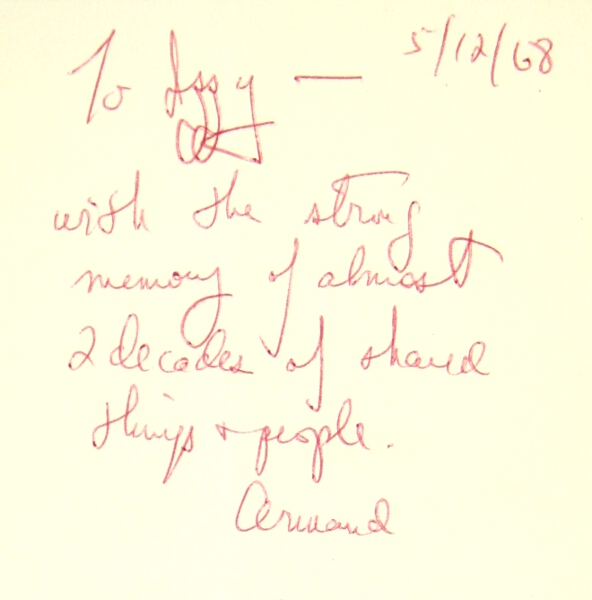 To Izzy — 5/12/68
with the strong
memory of almost
2 decades of shared
things + people.
Armand